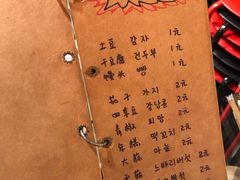 土豆 감자 1元
干豆腐 건두부 1元
馒头 빵 1元
茄子 가지 2元
四季豆 강낭콩 2元
青椒 피망 2元
年糕 떡꼬치 2元
大蒜 마늘 2元
느타리버섯 2元
버섯